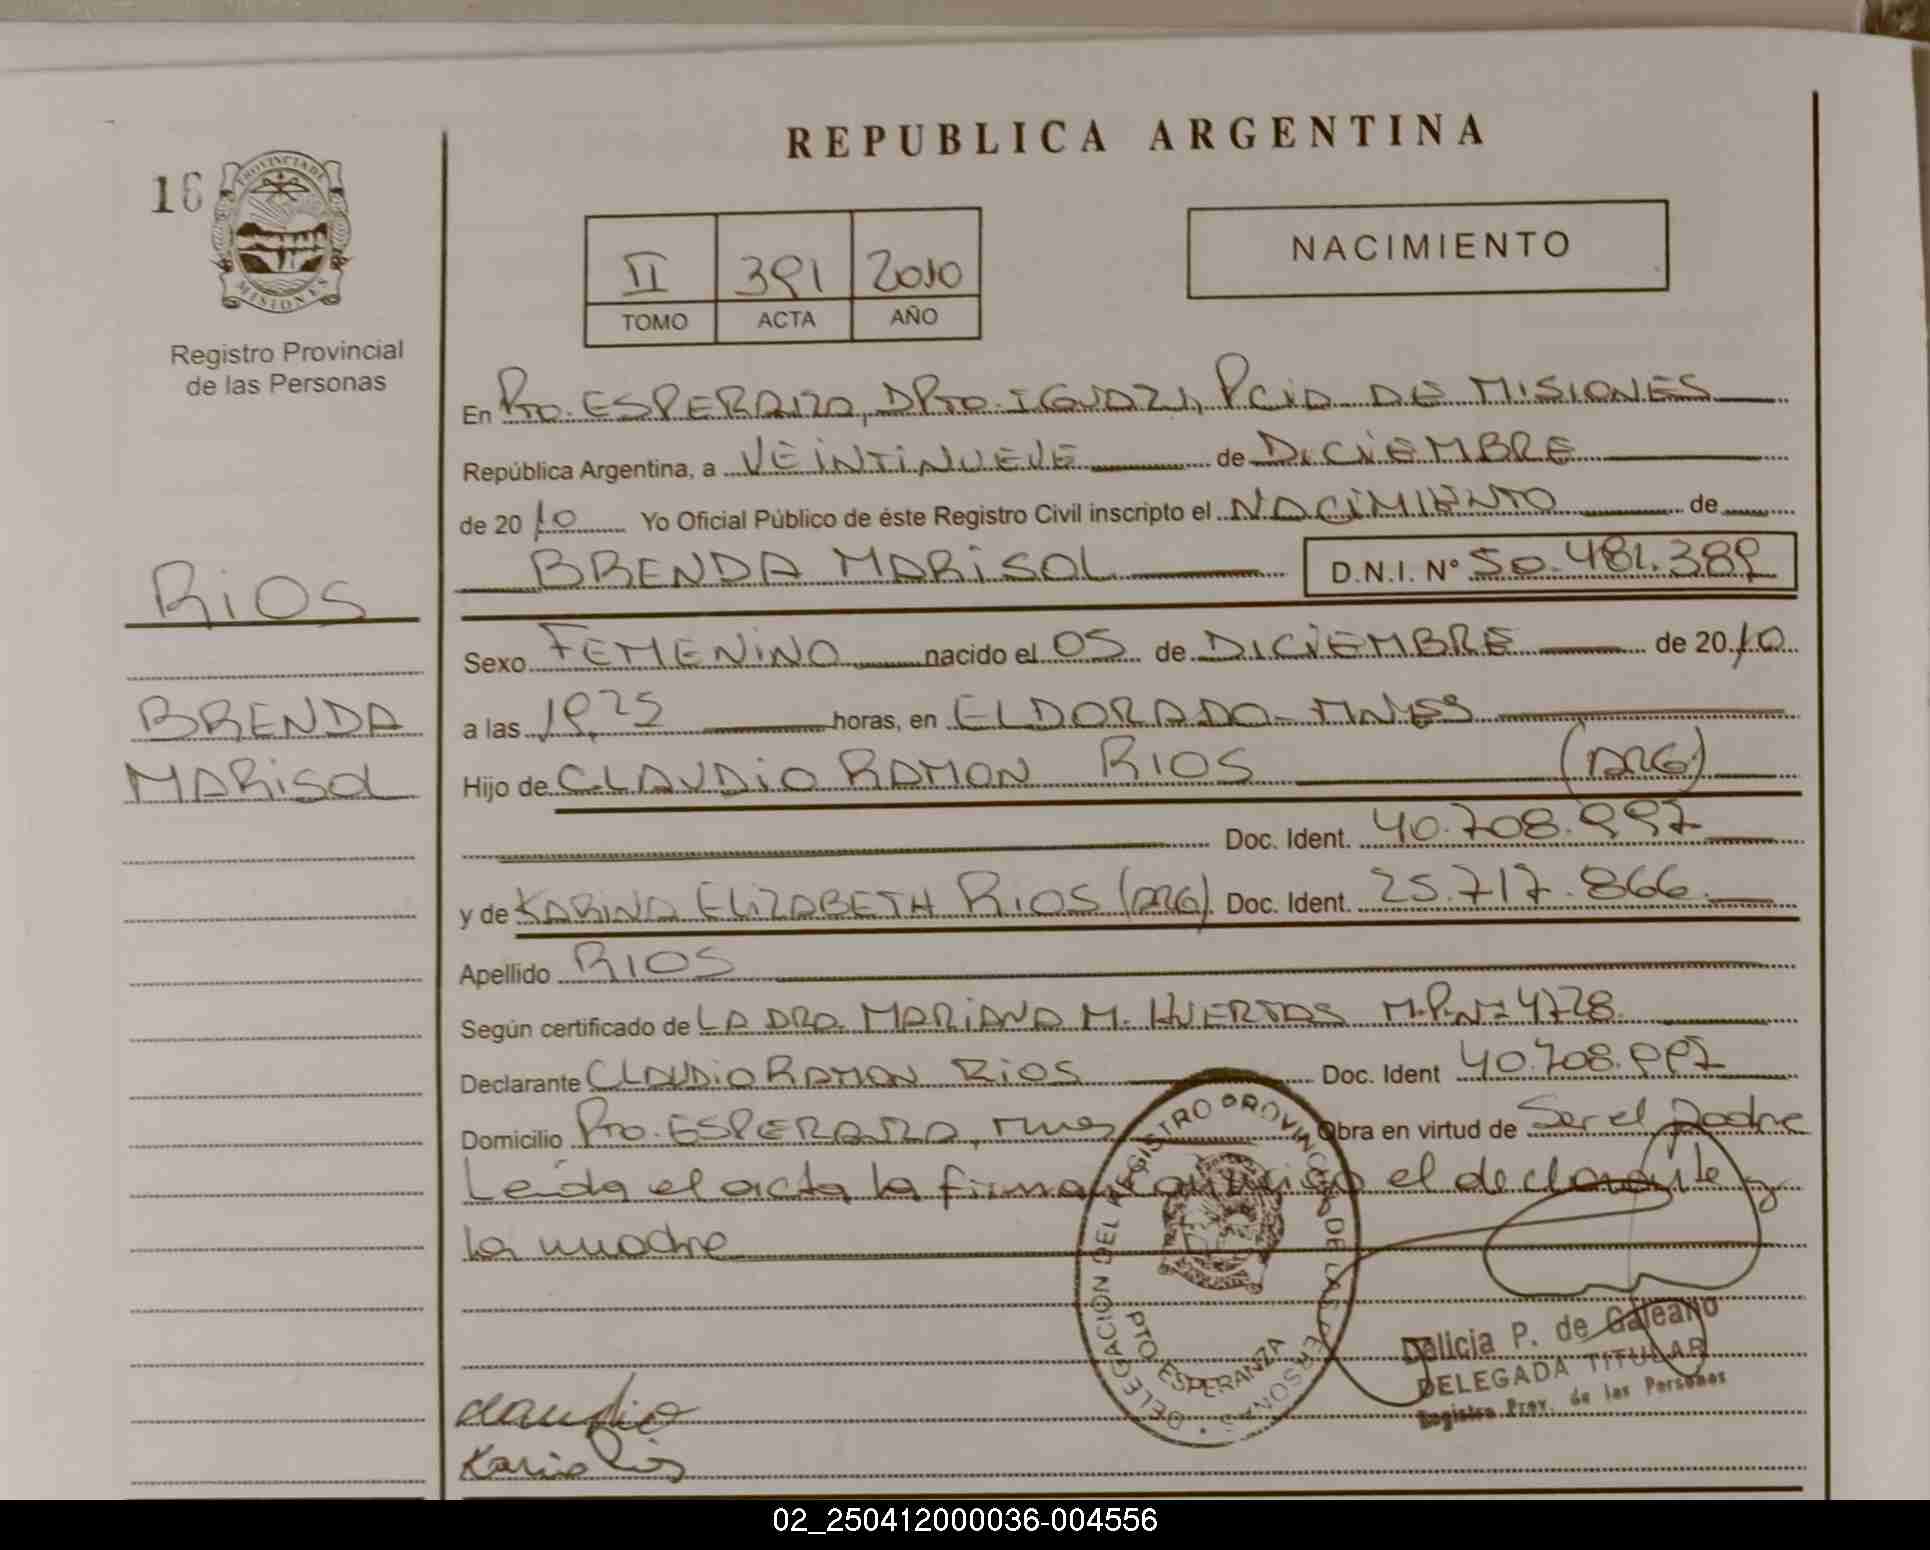 REPUBLICA ARGENTINA
16
PROVINCIA DE
MISIONES
Registro Provincial
de las Personas
II 391 2010
TOMO ACTA AÑO
NACIMIENTO
En Pto. ESPERANZA, DPTO. IGUAZU, PCIA DE MISIONES
República Argentina, a VEINTINUEVE de DICIEMBRE
de 2010 Yo Oficial Público de éste Registro Civil inscripto el NACIMIENTO de
BRENDA MARISOL D.N.I. Nº 50.481.389
RIOS
BRENDA
MARISOL
Sexo FEMENINO nacido el 05 de DICIEMBRE de 2010
a las 19,25 horas, en ELDORADO - MNES
Hijo de CLAUDIO RAMON RIOS (ARG)
Doc. Ident. 40.708.997
y de KARINA ELIZABETH RIOS (ARG) Doc. Ident. 25.717.866
Apellido RIOS
Según certificado de LA DRA. MARIANA M. HUERTAS M.P.Nº 4728
Declarante CLAUDIO RAMON RIOS Doc. Ident 40.708.997
Domicilio Pto. ESPERANZA, Mnes Obra en virtud de Ser el Padre
Leida el acta la firma conmigo el declarante y
la madre
DELEGACION DEL REGISTRO PROVINCIAL DE LAS PERSONAS
PTO. ESPERANZA
Dalicia P. de Galeano
DELEGADA TITULAR
Registro Prov. de las Personas
claudio
Karina Rios
02_250412000036-004556